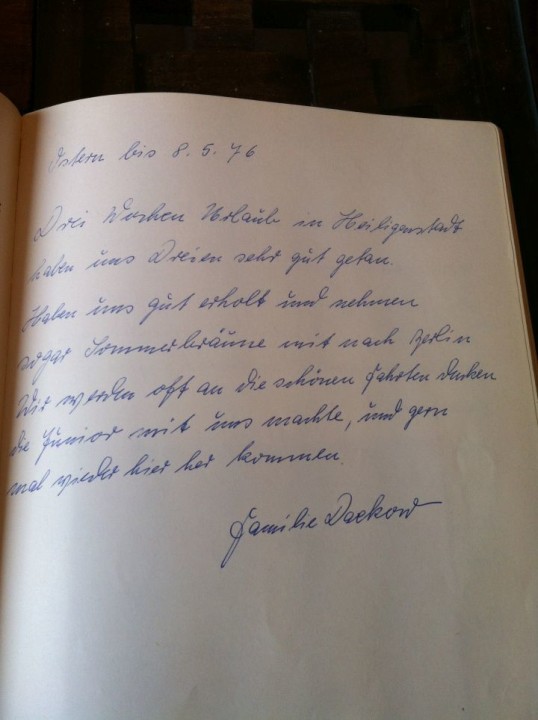 Ostern bis 8.5.76
Drei Wochen Urlaub in Heiligenstadt
haben uns Dreien sehr gut getan.
Haben uns gut erholt und nehmen
sogar Sommerbräune mit nach Berlin
Wir werden oft an die schönen Fahrten denken
die Junior mit uns machte, und gern
mal wieder hier her kommen.
Familie Dackow